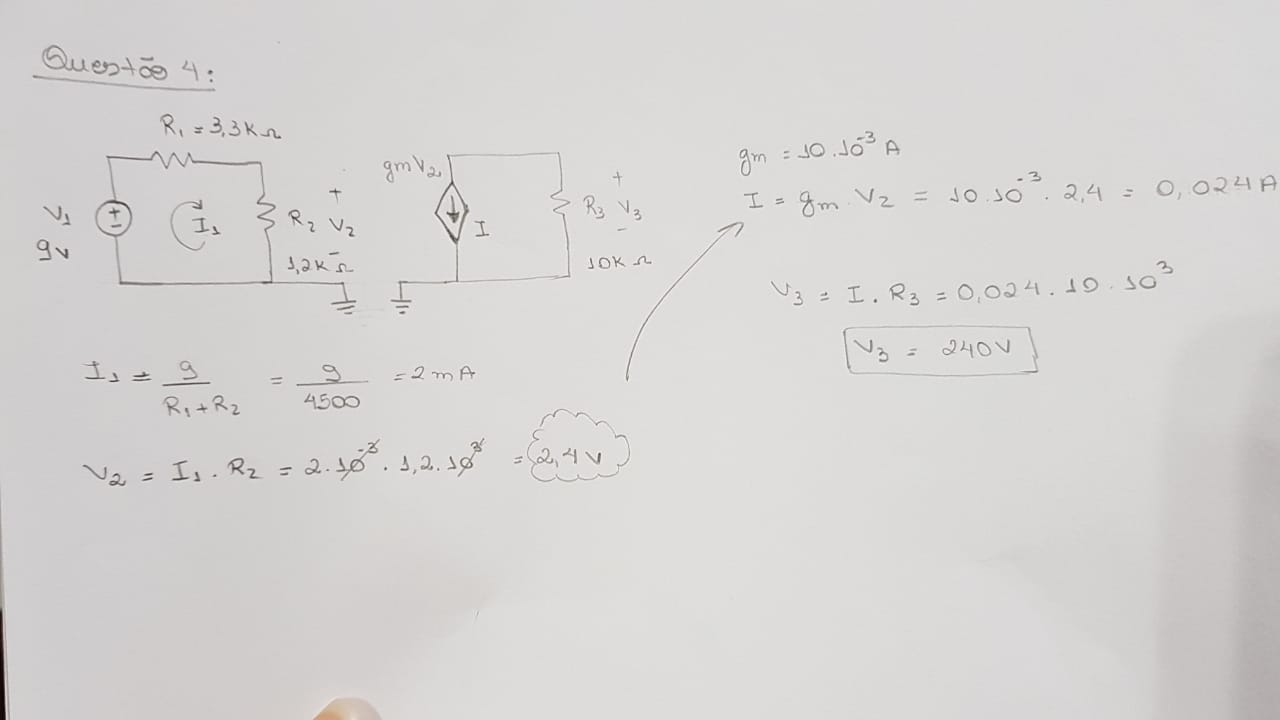 Questão 4:
R₁ = 3,3KΩ
V₁
9v
I₁
R₂
1,2KΩ
+
V₂
-
gmV₂
I
R₃
10KΩ
+
V₃
-
I₁ = 9/(R₁+R₂) = 9/4500 = 2mA
V₂ = I₁ . R₂ = 2.10⁻³ . 1,2.10³ = 2,4v
gm = 10.10⁻³ A
I = gm. V₂ = 10.10⁻³ . 2,4 = 0,024A
V₃ = I . R₃ = 0,024 . 10 . 10³
V₃ = 240V